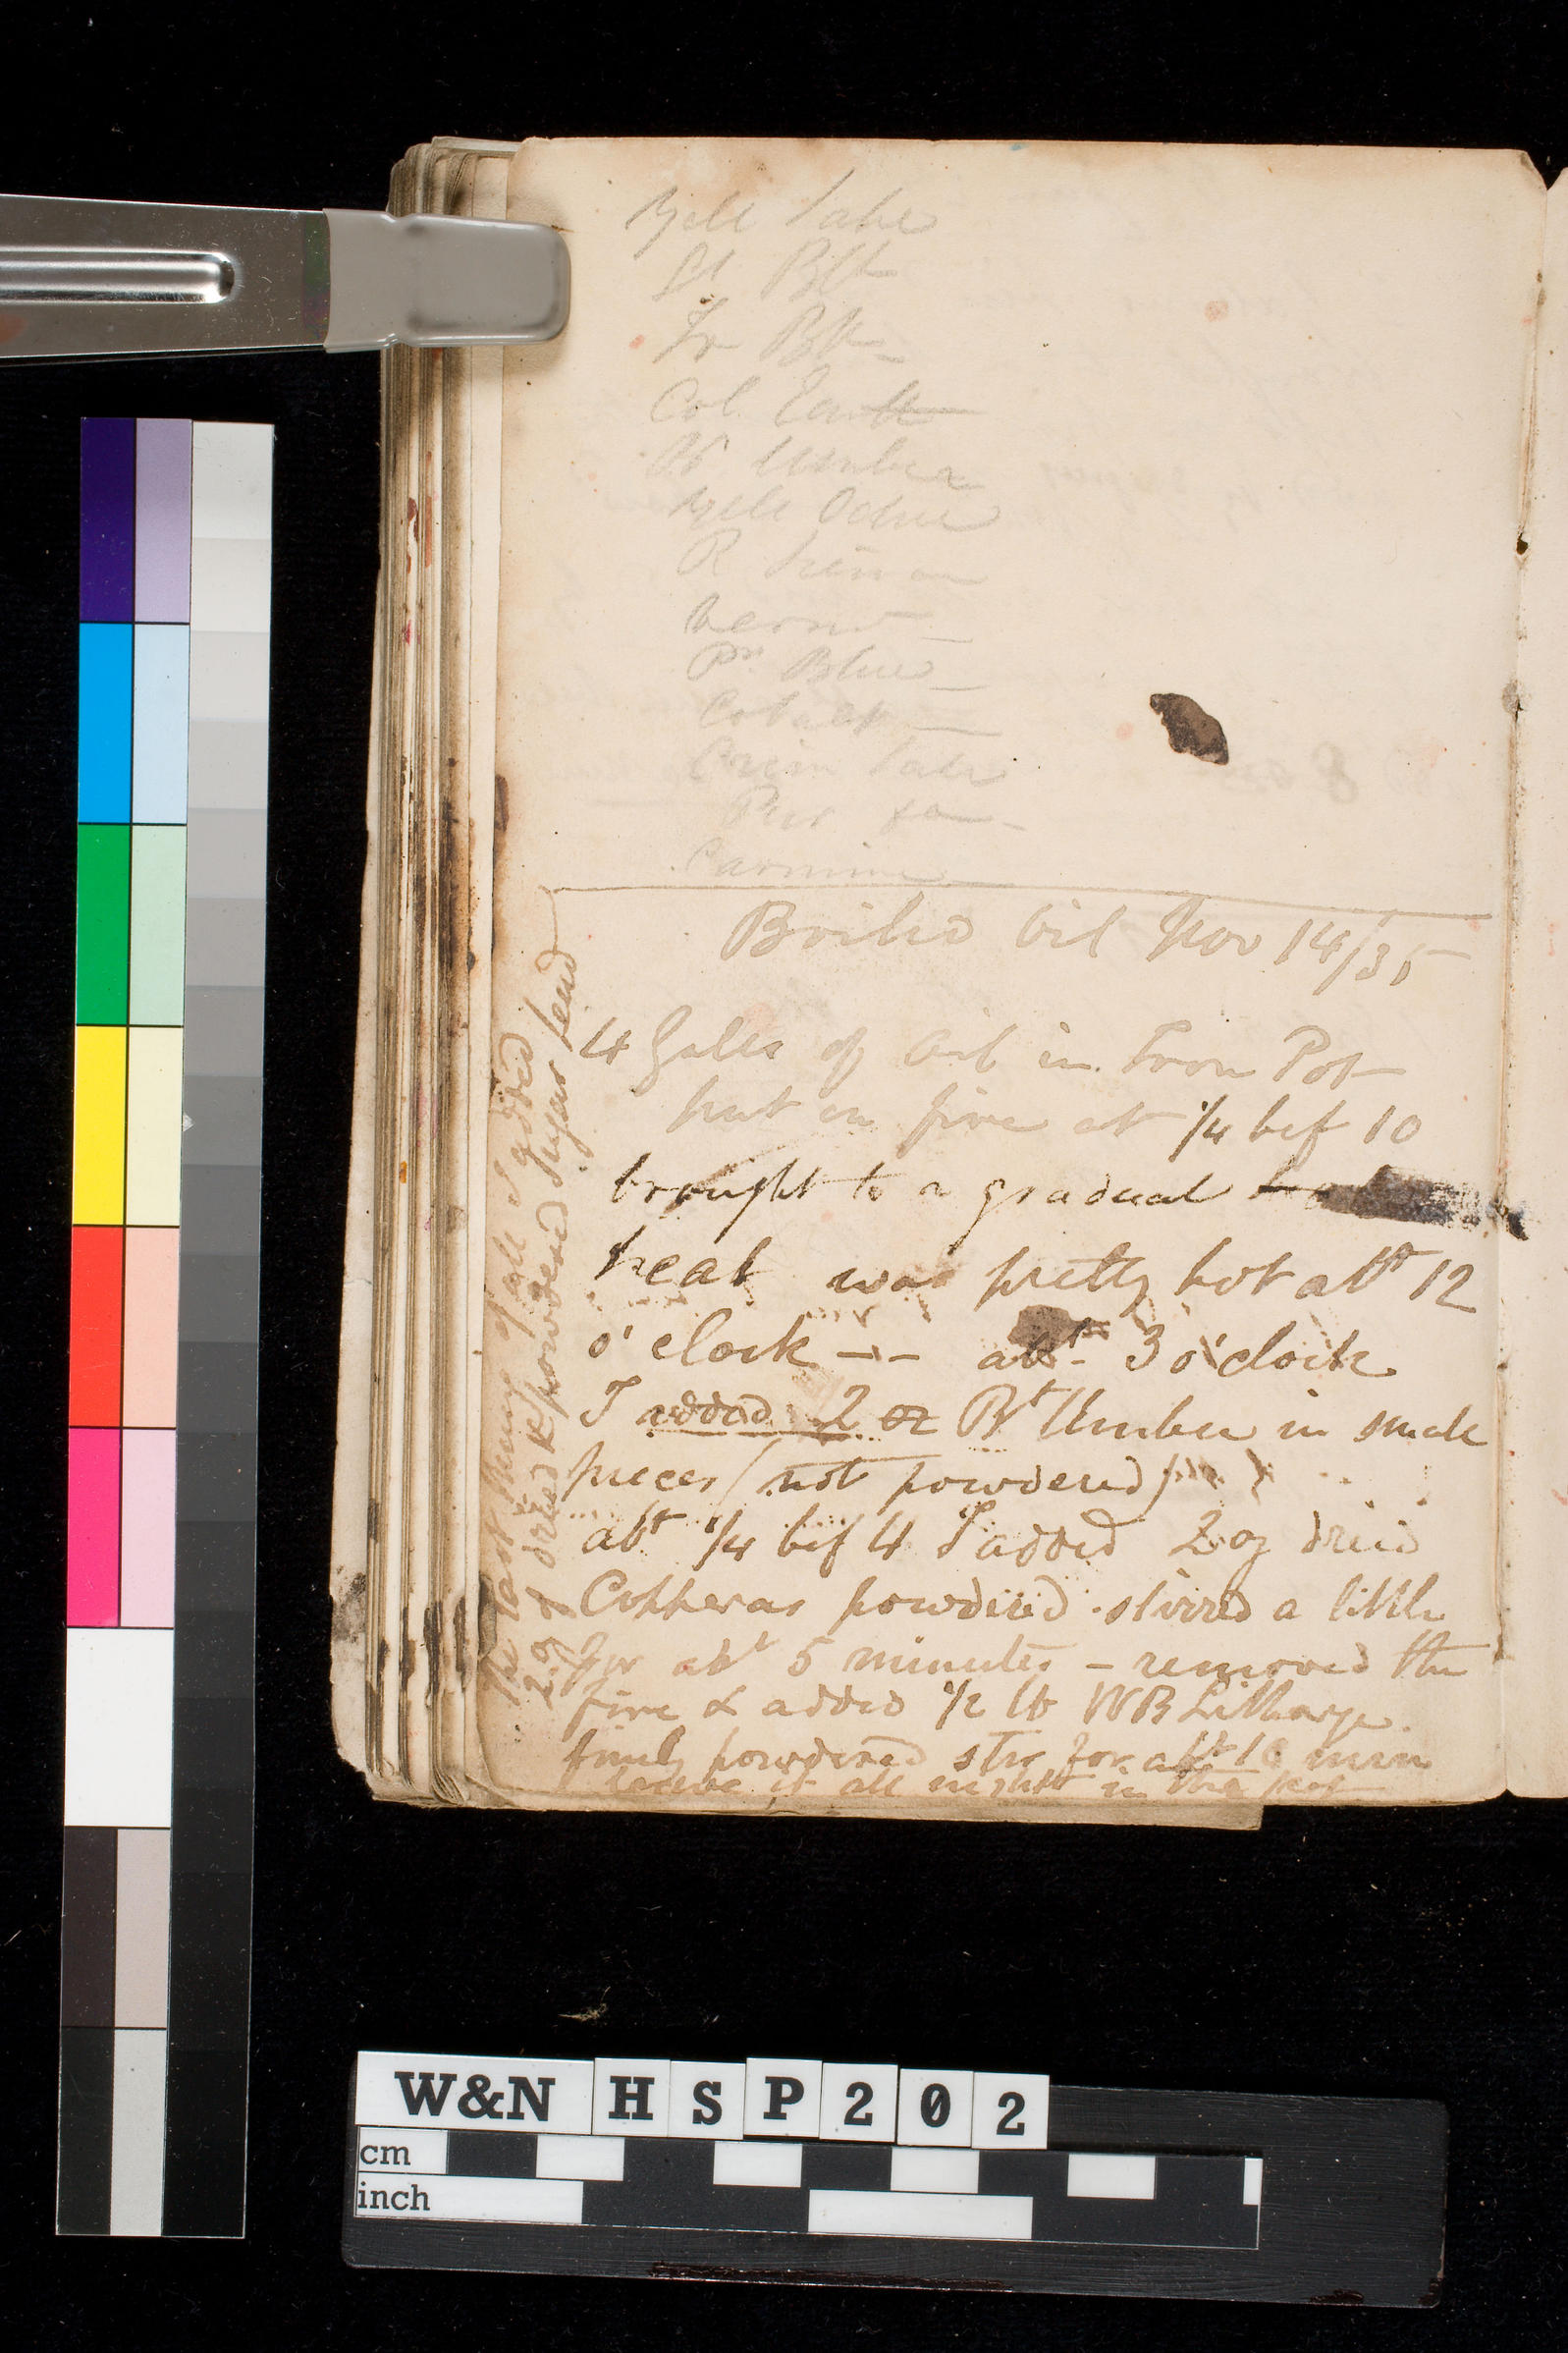 Yell Lake
Bl Blk
Iv Blk
Col. Earth
Umber
Yell Ochre
R Sienna
Vermn
Pn Blue
Cobalt
Crim Lake
Pur do
Carmine
Boiled Oil Nov 14/35
4 Galls of Oil in Iron Pot
put on fire at 1/4 bef 10
brought to a gradual
heat was pretty hot abt 12
o'clock -- abt 3 o'clock
I added 2 oz Bt Umber in small
pieces (not powdered)
abt 1/4 bef 4 I added 2 oz dried
Copperas powdered stirred a little
for abt 5 minutes - removed the
fire & added 1/2 lb WB Litharge
finely powdered stir for abt 10 min
leave it all night in the pot
The last thing of all I added
2 oz of dried & powdered Sugar Lead
W&N HSP202
cm
inch